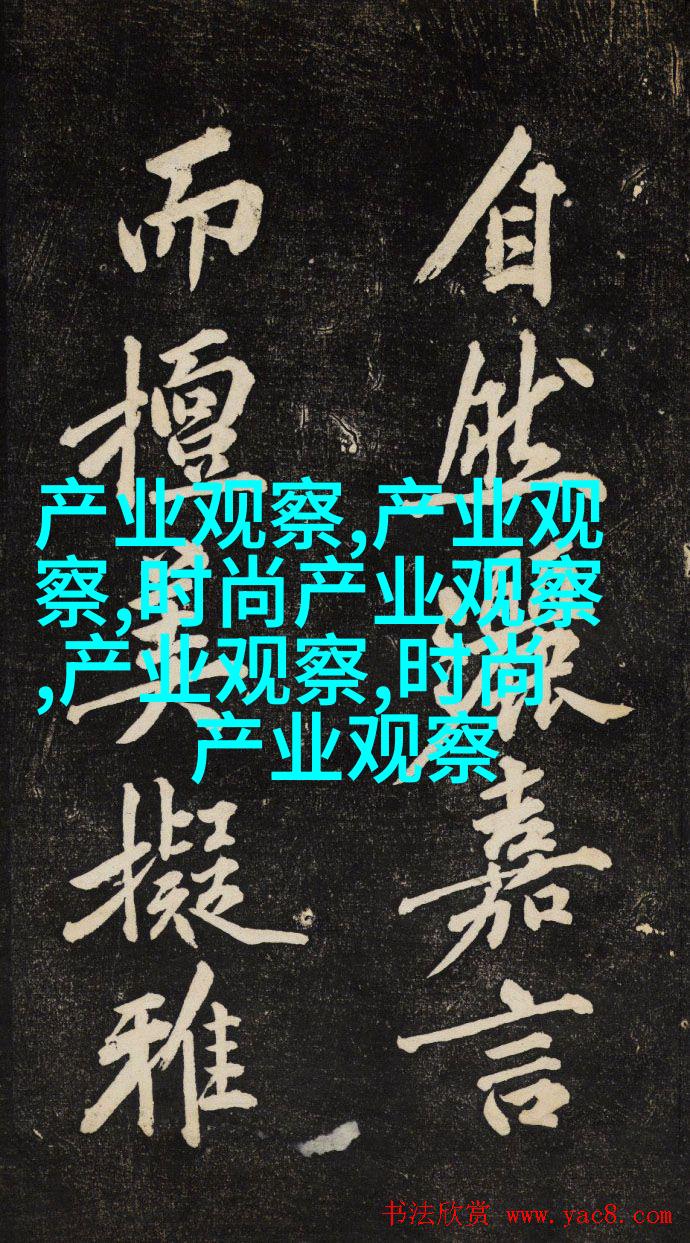 自然嘉言
而擅美擬雅
产业观察,产业观
察,时尚产业观察
,产业观察,时尚
产业观察
书法欣赏 www.yac8.com